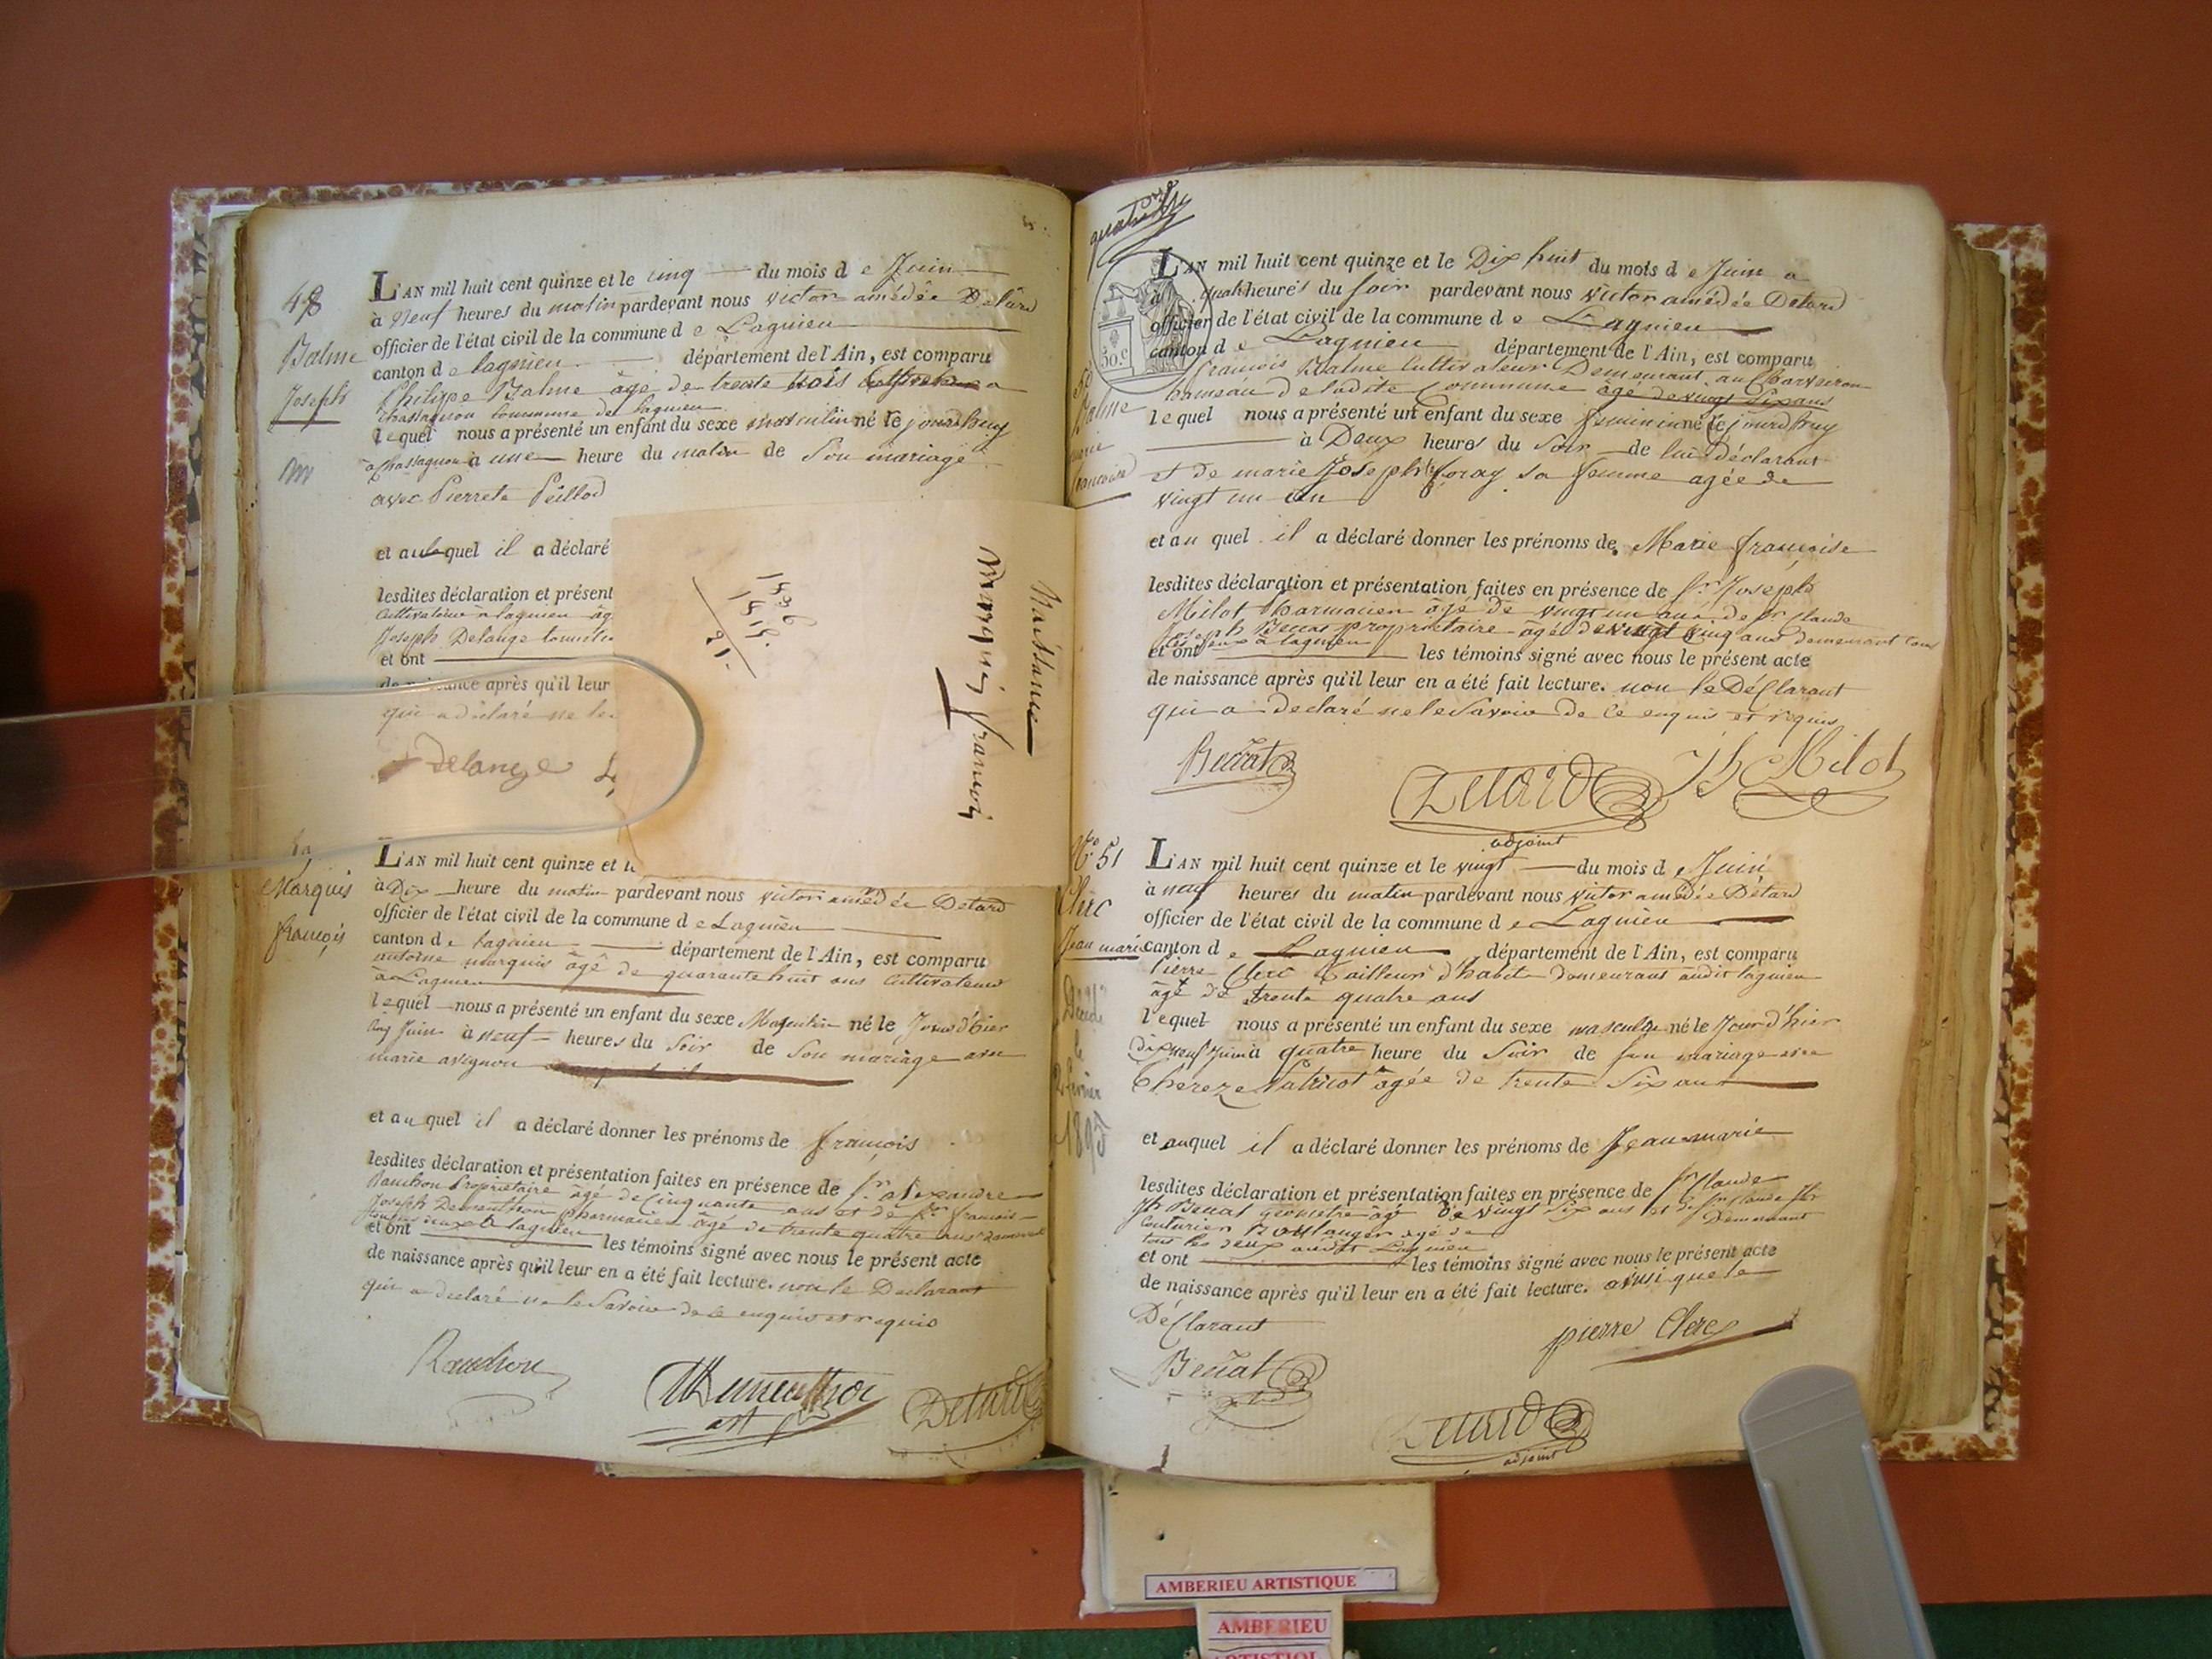 48
Balme
Joseph
m
L'AN mil huit cent quinze et le cinq du mois de Juin
à Neuf heures du matin pardevant nous victor amédée Detard
officier de l'état civil de la commune de Lagnieu
canton de lagnieu département de l'Ain, est comparu
Philippe Balme âgé de trente trois Cultivateur a
Chassagnou commune de lagnieu
lequel nous a présenté un enfant du sexe masculin né le jourdhuy
à Chassagnou à une heure du matin de Son mariage
avec Pierrete Peillod
et auquel il a déclaré
lesdites déclaration et présent
Cultivateur à lagnieu âg
Joseph Delange
et ont
de naissance après qu'il leur
qui a déclaré ne le
Delange
Naissance
Marquis françois
1896
1815
81
Marquis
françois
L'AN mil huit cent quinze et le
à Dix heure du matin pardevant nous victor amédée Detard
officier de l'état civil de la commune de Lagnieu
canton de lagnieu département de l'Ain, est comparu
antoine marquis âgé de quarante huit ans Cultivateur
à Lagnieu
lequel nous a présenté un enfant du sexe Masculin né le Jour d'hier
cinq Juin à neuf heures du Soir de Son mariage avec
marie avignon
et auquel il a déclaré donner les prénoms de françois
lesdites déclaration et présentation faites en présence de Sr. alexandre
Raudon Proprietaire âgé de Cinquante ans et de Sr. francois
Joseph Dementhon pharmacien âgé de trente quatre ans demeurant
tous les deux à lagnieu
et ont les témoins signé avec nous le présent acte
de naissance après qu'il leur en a été fait lecture. non le Declarant
qui a declaré ne le Savoir de ce enquis et requis
Detard
quatorze
50.c
Balme
marie
francoise
L'AN mil huit cent quinze et le Dix huit du mois de Juin a
à quatre heures du soir pardevant nous victor amédée Detard
officier de l'état civil de la commune de Lagnieu
canton de Lagnieu département de l'Ain, est comparu
francois Balme Cultivateur Demeurant au Charveiron
hameau de ladite Commune âgé de vingt Six ans
lequel nous a présenté un enfant du sexe feminin né le jourdhuy
à Deux heures du Soir de lui déclarant
et de marie Joseph foray sa femme agée de
vingt un an
et au quel il a déclaré donner les prénoms de Marie françoise
lesdites déclaration et présentation faites en présence de Sr. Joseph
Milot Pharmacien âgé de vingt un an et de Sr. Claude
Joseph Benat proprietaire âgé de vingt Cinq ans demeurant tous
les deux à lagnieu
et ont les témoins signé avec nous le présent acte
de naissance après qu'il leur en a été fait lecture. non le Déclarant
qui a declaré ne le Savoir de ce enquis et requis
Benat
Detard
adjoint
Jh Milot
No 51
Clerc
Jean marie
Décédé
le
2 février
1895
L'AN mil huit cent quinze et le vingt du mois de Juin
à neuf heures du matin pardevant nous victor amédée Detard
officier de l'état civil de la commune de Lagnieu
canton de Lagnieu département de l'Ain, est comparu
Pierre Clerc Tailleur d'habit demeurant audit lagnieu
âgé de trente quatre ans
lequel nous a présenté un enfant du sexe masculin né le Jour d'hier
Dix neuf Juin à quatre heure du Soir de son mariage avec
Thereze Patricot agée de trente Six an
et auquel il a déclaré donner les prénoms de Jean marie
lesdites déclaration et présentation faites en présence de Sr. Claude
Jh Benat géometre âgé de vingt Six ans et de Sr. Claude Jh
Couturier Boulanger agé de Demeurant
tous les deux audit Lagnieu
et ont les témoins signé avec nous le présent acte
de naissance après qu'il leur en a été fait lecture. ainsi que le
Déclarant
pierre Clerc
Benat
Detard
adjoint
AMBERIEU ARTISTIQUE
AMBERIEU
ARTISTIQUE